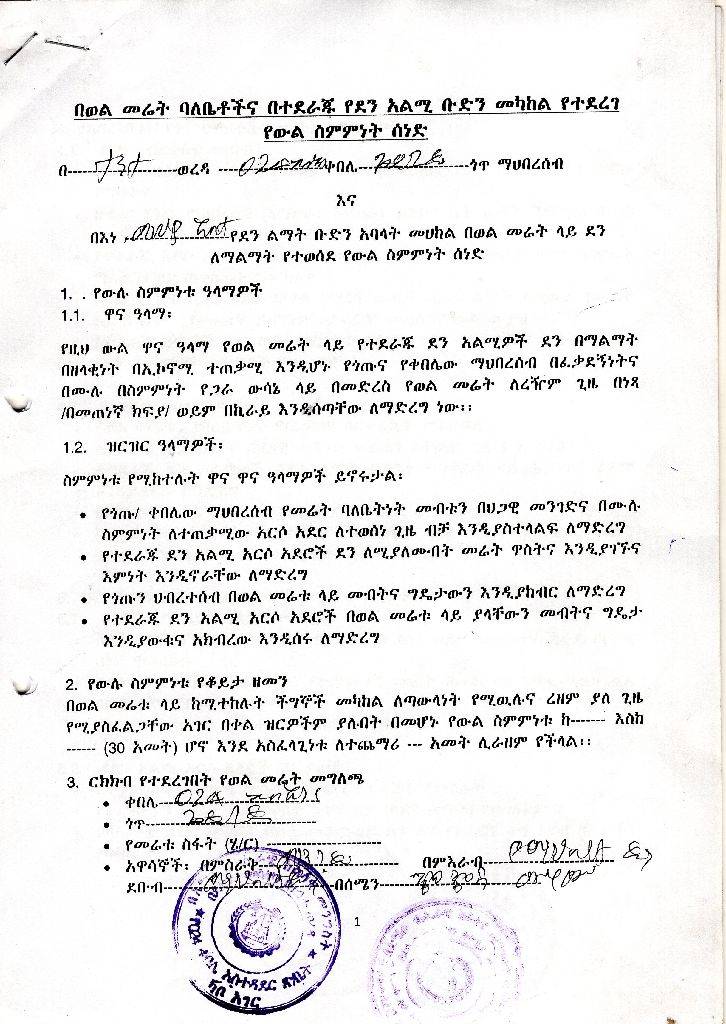 በወል መሬት ባለቤቶችና በተደራጁ የደን አልሚ ቡድን መካከል የተደረገ
የውል ስምምነት ሰነድ
በ----------------ወረዳ ----------------ቀበሌ----------------ጎጥ ማህበረሰብ
እና
በእነ ----------------የደን ልማት ቡድን አባላት መሀከል በወል መሬት ላይ ደን
ለማልማት የተወሰደ የውል ስምምነት ሰነድ
1. . የውሉ ስምምነቱ ዓላማዎች
1.1. ዋና ዓላማ፡
የዚህ ውል ዋና ዓላማ የወል መሬት ላይ የተደራጁ ደን አልሚዎች ደን በማልማት
በዘላቂነት በኢኮኖሚ ተጠቃሚ እንዲሆኑ የጎጡና የቀበሌው ማህበረሰብ በፈቃደኝነትና
በሙሉ በስምምነት የጋራ ውሳኔ ላይ በመድረስ የወል መሬት ለረዥም ጊዜ በነጻ
/በመጠነኛ ክፍያ/ ወይም በኪራይ እንዲሰጣቸው ለማድረግ ነው፡፡
1.2. ዝርዝር ዓላማዎች፡
ስምምነቱ የሚከተሉት ዋና ዋና ዓላማዎች ይኖሩታል፡
• የጎጡ/ ቀበሌው ማህበረሰብ የመሬት ባለቤትነት መብቱን በህጋዊ መንገድና በሙሉ
ስምምነት ለተጠቃሚው አርሶ አደር ለተወሰነ ጊዜ ብቻ እንዲያስተላልፍ ለማድረግ
• የተደራጁ ደን አልሚ አርሶ አደሮች ደን ለሚያለሙበት መሬት ዋስትና እንዲያገኙና
እምነት እንዲኖራቸው ለማድረግ
• የጎጡን ህብረተሰብ በወል መሬቱ ላይ መብትና ግዴታውን እንዲያከብር ለማድረግ
• የተደራጁ ደን አልሚ አርሶ አደሮች በወል መሬቱ ላይ ያላቸውን መብትና ግዴታ
እንዲያውቁና አክብረው እንዲሰሩ ለማድረግ
2. የውሉ ስምምነቱ የቆይታ ዘመን
በወል መሬቱ ላይ ከሚተከሉት ችግኞች መካከል ለጣውላነት የሚዉሉና ረዘም ያለ ጊዜ
የሚያስፈልጋቸው አገር በቀል ዝርዎችም ያሉበት በመሆኑ የውል ስምምነቱ ከ------- እስከ
------ (30 አመት) ሆኖ እንደ አስፈላጊነቱ ለተጨማሪ --- አመት ሊራዘም የችላል፡፡
3. ርክክብ የተደረገበት የወል መሬት መግለጫ
• ቀበሌ----------------
• ጎጥ----------------
• የመሬቱ ስፋት (ሄ/ር)----------------
• አዋሳኞች፡ በምስራቅ---------------- በምእራብ----------------
ደቡብ---------------- በሰሜን----------------
1